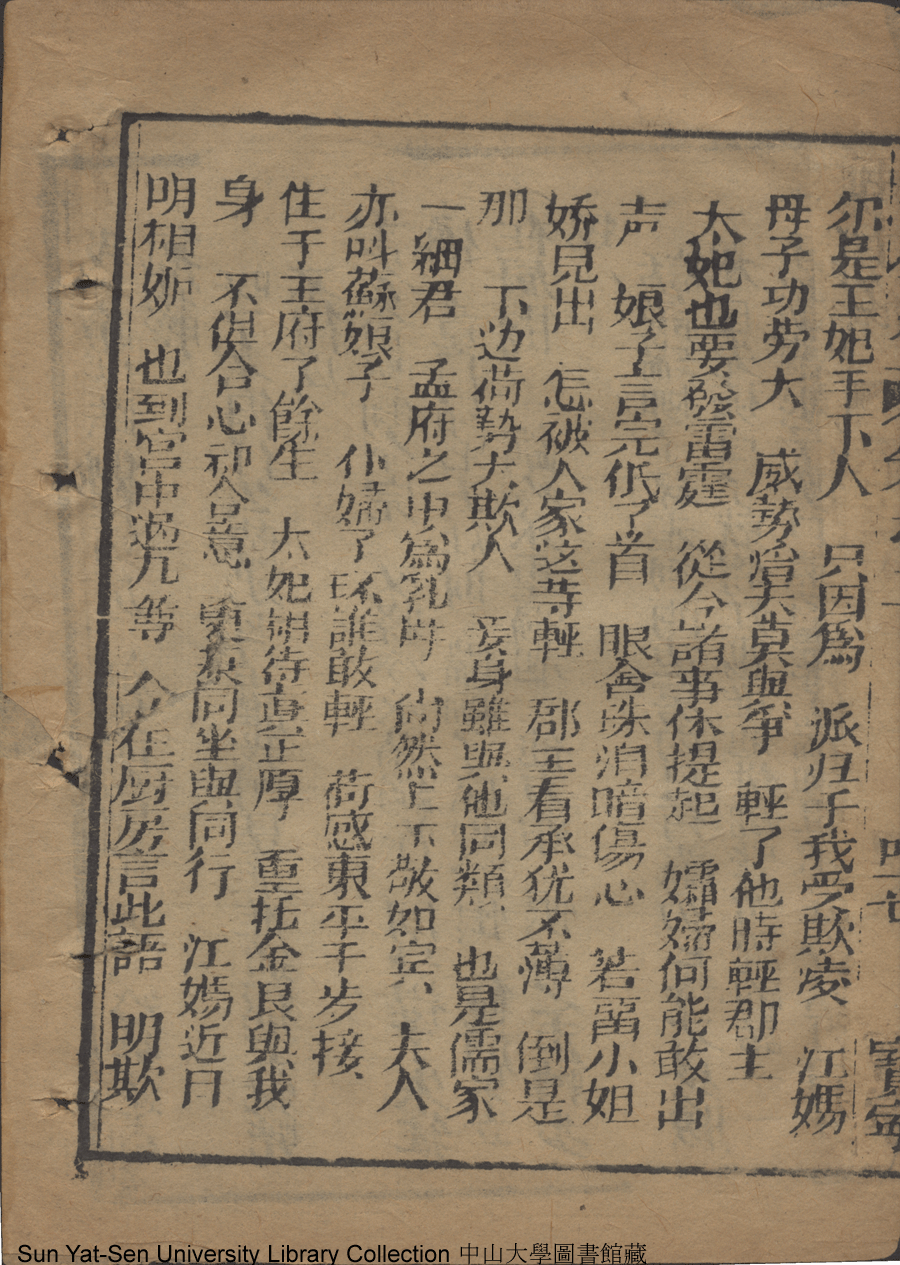 尔是王妃手下人　只因爲　派归于我受欺凌　江媽
母子功劳大　威勢滔天莫與爭　輕了他時輕郡主
太妃也要發雷霆　從今諸事休提起　孀婦何能敢出
声　娘子言完低了首　眼含珠泪暗傷心　若留小姐
娇児出　怎被人家这等輕　郡王看承犹不薄　倒是
那　下边荷勢大欺人　妾身雖與他同類　也是儒家
一細君　孟府之中爲乳母　尚然上下敬如宾　夫人
亦叫蘇娘子　仆婦了环誰敢輕　荷感東平千步接
住于王府了餘生　太妃相待真正厚　重托金良與我
身　不但合心初合意　更兼同坐與同行　江媽近日
明相妒　也到宫中過九等　今在厨房言此語　明欺
寳寧
Sun Yat-Sen University Library Collection 中山大學圖書館藏